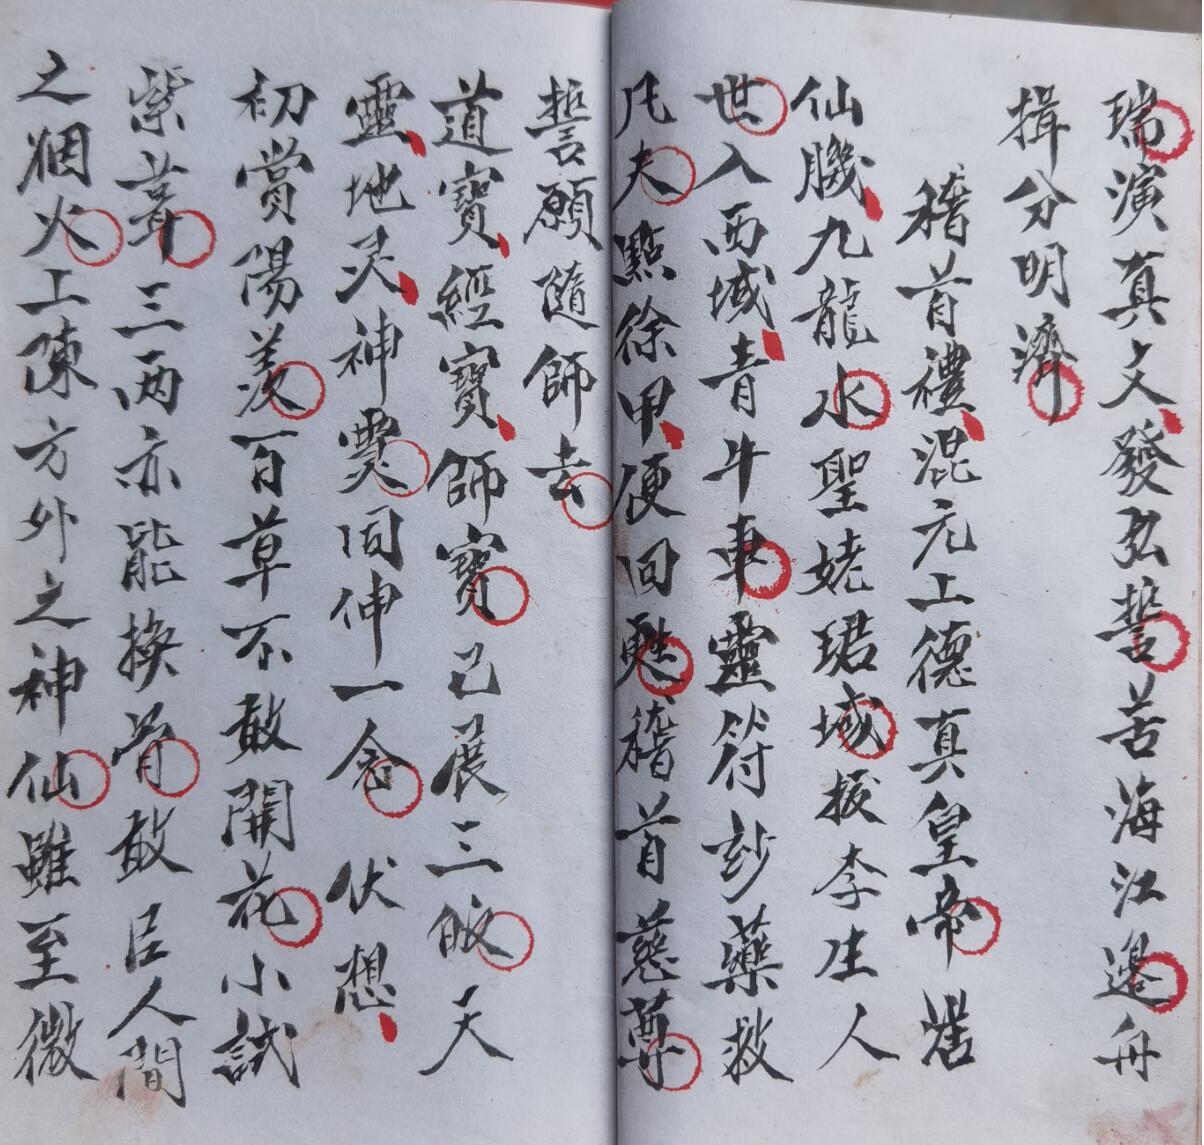 瑞演真文發弘誓苦海江邊舟
揖分明濟
稽首禮混元上德真皇帝
仙職九龍水聖姥珺域扳李生人
世入西域青牛車靈符妙藥救
凡夫點徐甲便回甦稽首慈尊
誓願隨師去
道寶經寶師寶已展三皈天
靈地灵神灵同伸一念伏想
初嘗陽羨百草不敢開花小試
紫茸三両亦能換骨敢臣人間
之烟火上陳方外之神仙雖至微